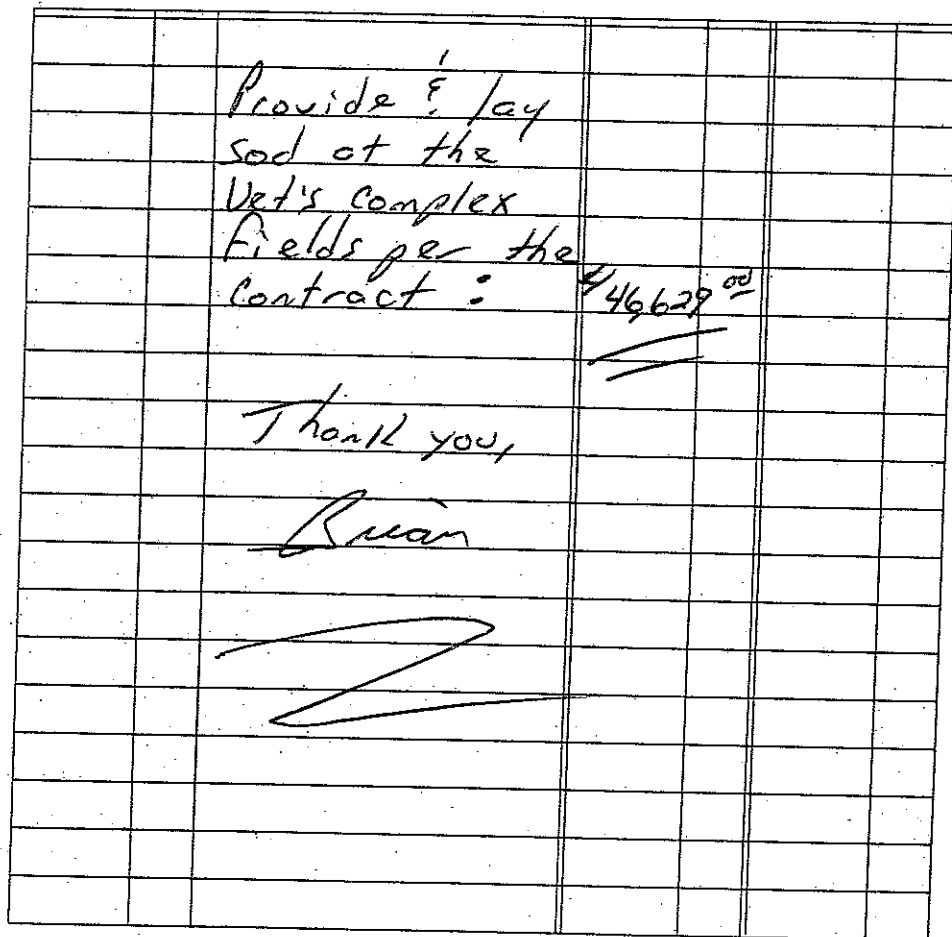 Provide & lay
sod at the
Vet's complex
fields per the
contract : $46,629 00
Thank you,
Brian